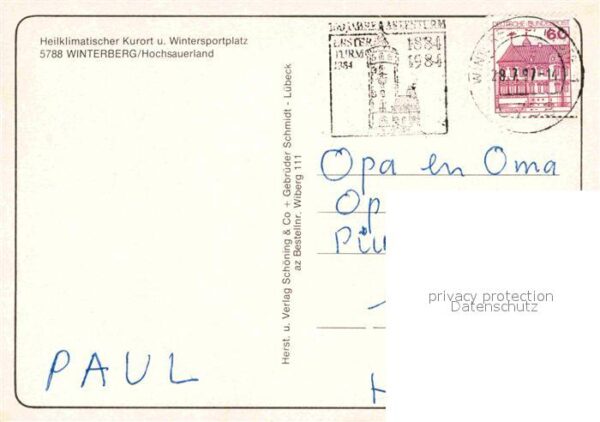 Heilklimatischer Kurort u. Wintersportplatz
5788 WINTERBERG/Hochsauerland
100 JAHRE ASTENTURM
ERSTER
TURM
1884
1884
1984
DEUTSCHE BUNDESPOST
60
Herst. u. Verlag Schöning & Co + Gebrüder Schmidt - Lübeck
az Bestellnr. Wiberg 111
Opa en Oma
Op
privacy protection
Datenschutz
PAUL